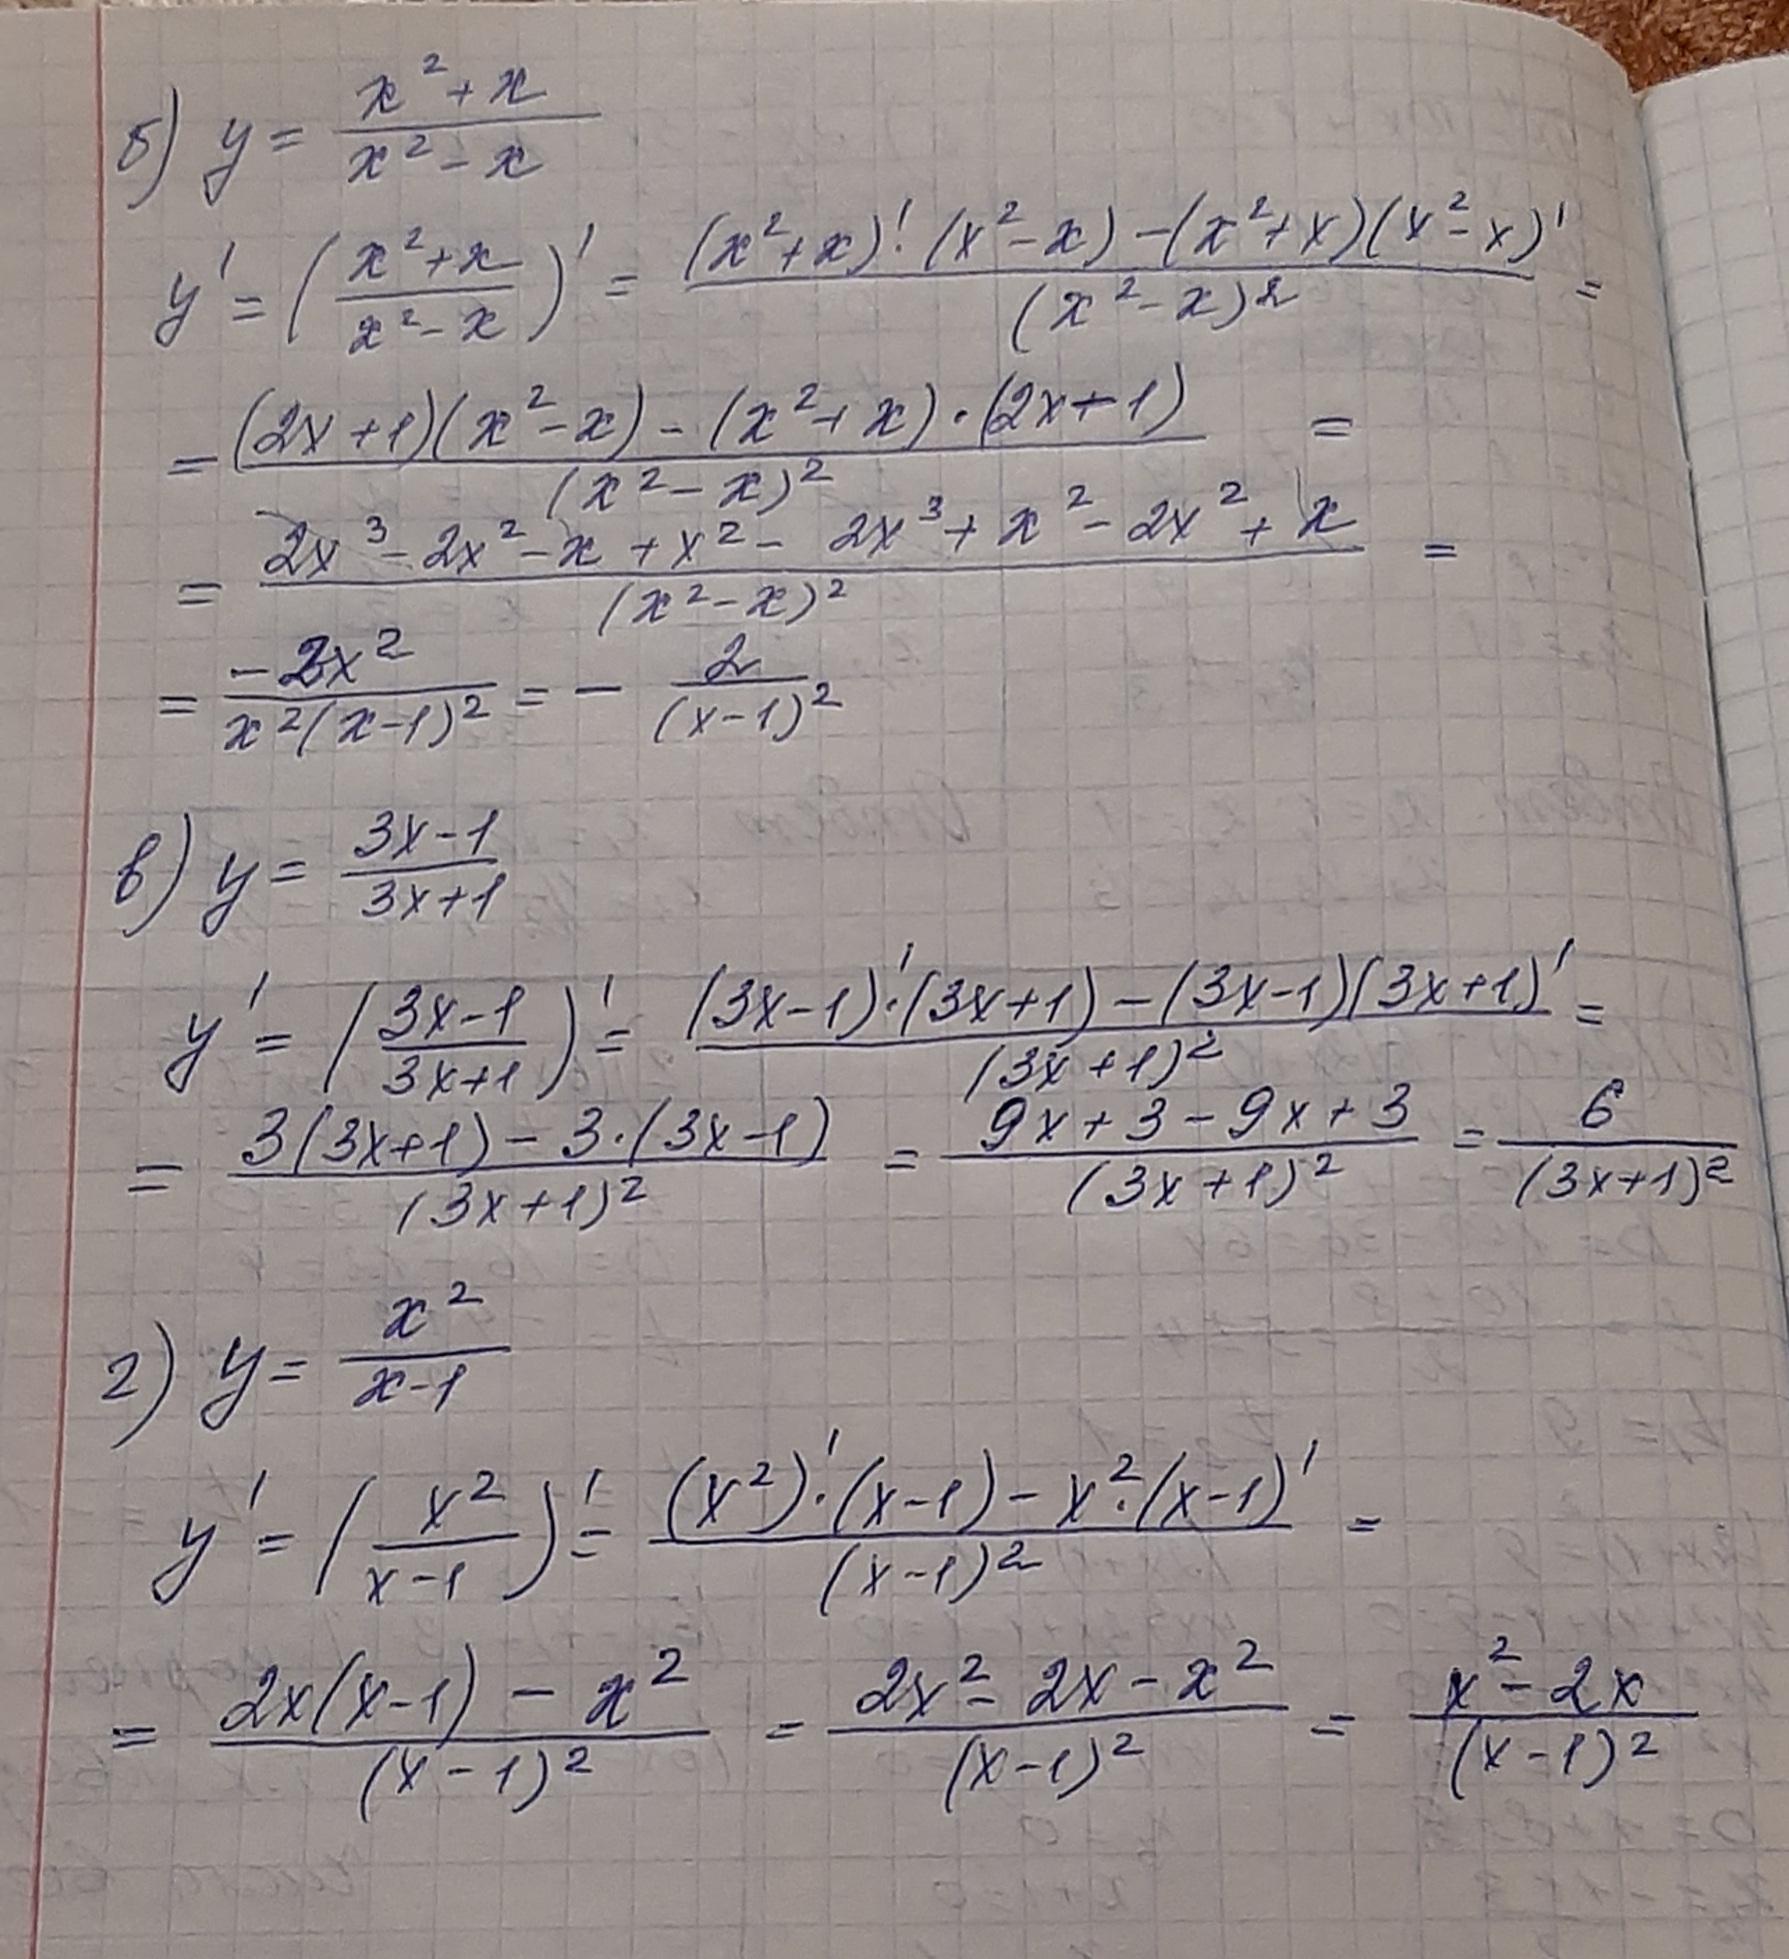 б) y = (x² + x)/(x² - x)
y' = ((x² + x)/(x² - x))' = ((x² + x)' · (x² - x) - (x² + x)(x² - x)')/(x² - x)² =
= ((2x + 1)(x² - x) - (x² + x) · (2x + 1))/(x² - x)² =
= (2x³ - 2x² - x + x² - 2x³ + x² - 2x² + x)/(x² - x)² =
= (-2x²)/(x²(x-1)²) = - 2/(x-1)²
в) y = (3x-1)/(3x+1)
y' = ((3x-1)/(3x+1))' = ((3x-1)' · (3x+1) - (3x-1)(3x+1)')/(3x+1)² =
= (3(3x+1) - 3 · (3x-1))/(3x+1)² = (9x + 3 - 9x + 3)/(3x+1)² = 6/(3x+1)²
г) y = x²/(x-1)
y' = (x²/(x-1))' = ((x²)' · (x-1) - x² · (x-1)')/(x-1)² =
= (2x(x-1) - x²)/(x-1)² = (2x² - 2x - x²)/(x-1)² = (x² - 2x)/(x-1)²